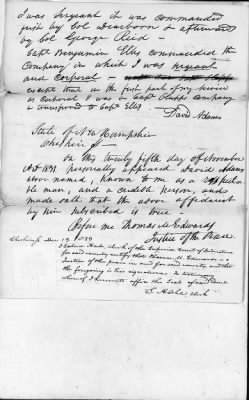 I was Sergeant it was commanded
first by Col Dearborn & afterwards
by Col George Reid —
Capt Benjamin Ellis commanded the
Company in which I was sergeant
and corporal —
except that in the first part of my service
as Corporal I was in Capt Company
& transferred to Capt Ellis —
David Adams
State of New Hampshire
Cheshire ss —
On this twenty fifth day of November
AD 1838 personally appeared David Adams
above named, known to me as a respecta
ble man, and a credible person, and
made oath that the above affidavit
by him subscribed is true
Before me Thomas M Edwards
Justice of the Peace
Cheshire ss Dec 19 1838
I Salma Hale, clerk of the Superior Court of Judicature
for said county certify that Thomas M. Edwards is a
Justice of the peace in and for said county and that
the foregoing is his signature. In testimony
whereof I hereunto affix the Seal of said Court
S. Hale clerk